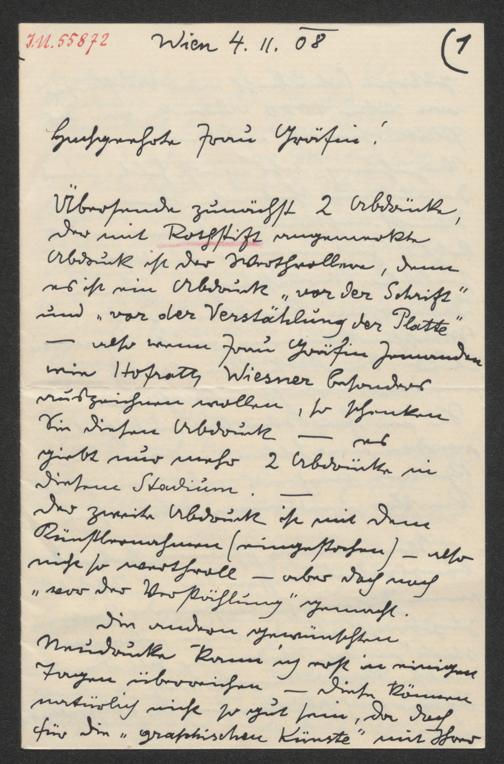 I.N. 55872 Wien 4. 11. 08 (1
Hochgeehrte Frau Gräfin!
Übersende zunächst 2 Abdrücke,
der mit Rothstift angemerkte
Abdruck ist der Werthvollere, denn
es ist ein Abdruck „vor der Schrift"
und „vor der Verstählung der Platte"
— also wenn Frau Gräfin Jemanden
wie Hofrath Wiesner besonders
auszeichnen wollen, so schenken
Sie diesen Abdruck — es
giebt nur mehr 2 Abdrücke in
diesem Stadium. —
Der zweite Abdruck ist mit dem
Künstlernahmen (eingestochen) — also
nicht so werthvoll — aber doch noch
„vor der Verstählung" gemacht.
Die andern gewünschten
Neudrucke kann ich erst in einigen
Tagen überreichen — diese können
natürlich nicht so gut sein, da doch
für die „graphischen Künste" mit